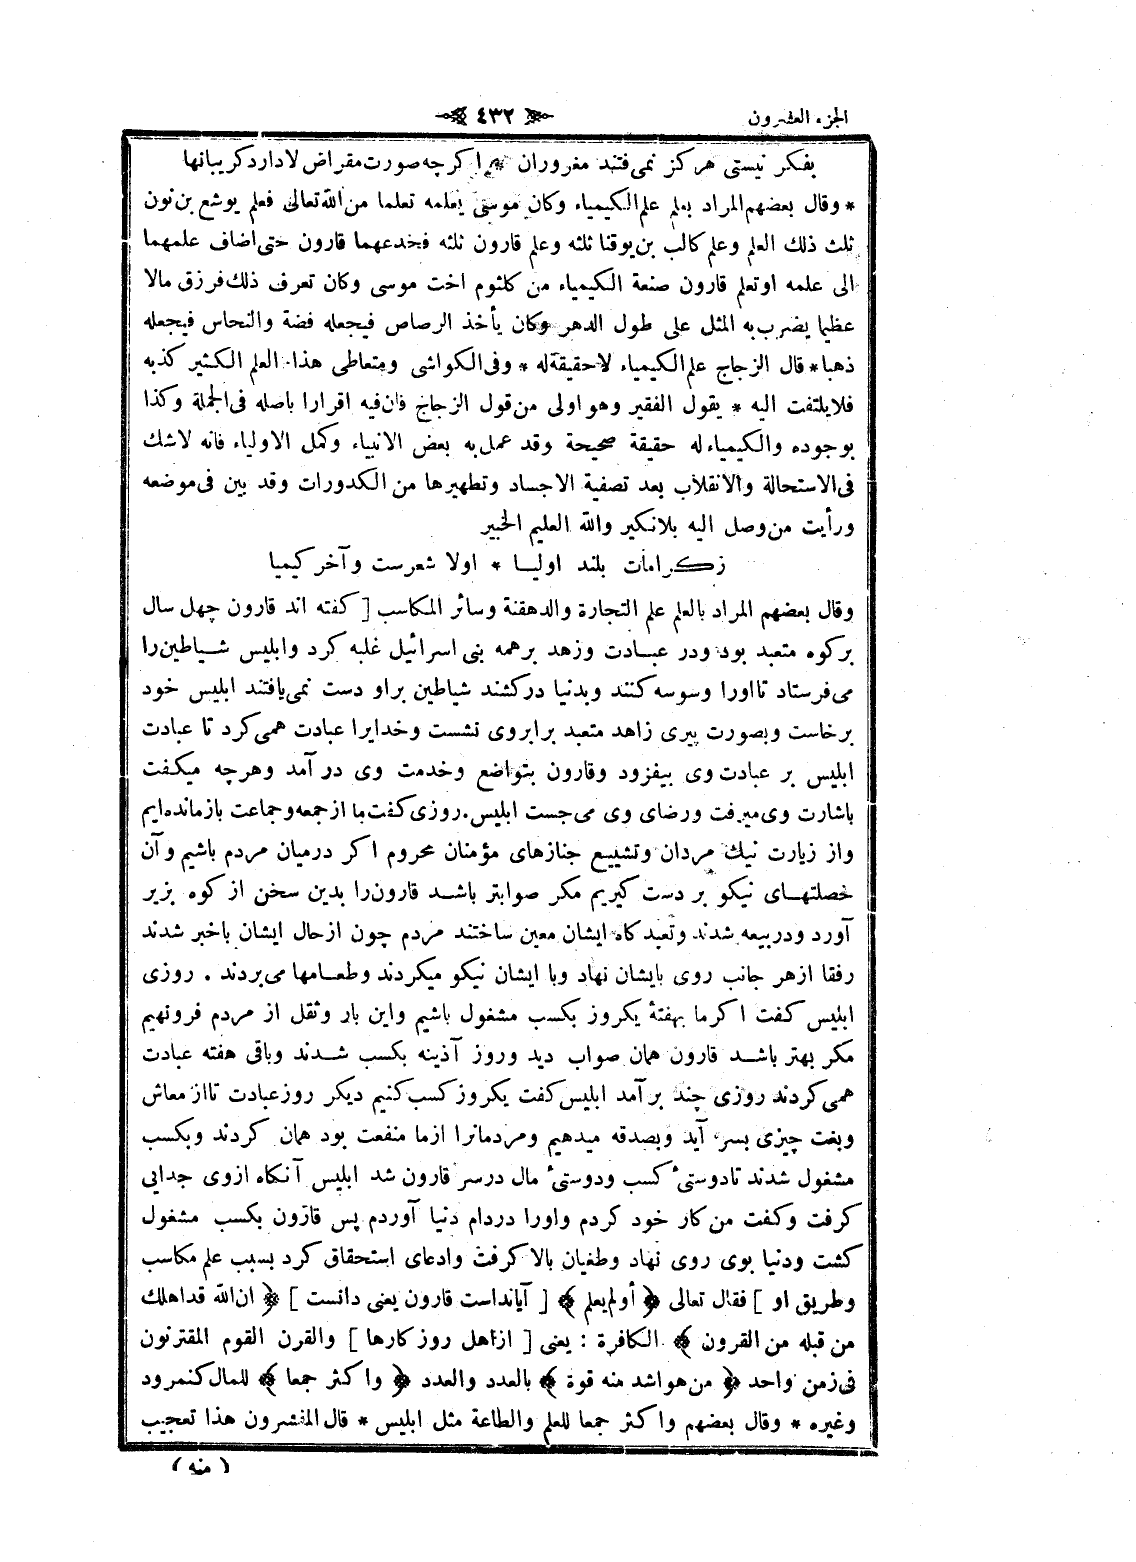 الجزء العشرون
﴿ ٤٣٢ ﴾
بفكر نيستى هركز نمى فتند مغروران * اكرچه صورت مقراض لا دارد كريبانها
* وقال بعضهم المراد بعلم علم الكيمياء وكان موسى يعلمه تعلما من الله تعالى فعلم يوشع بن نون
ثلث ذلك العلم وعلم كالب بن يوقنا ثلثه وعلم قارون ثلثه فخدعهما قارون حتى اضاف علمهما
الى علمه اوتعلم قارون صنعة الكيمياء من كلثوم اخت موسى وكان تعرف ذلك فرزق مالا
عظيما يضرب به المثل على طول الدهر وكان يأخذ الرصاص فيجعله فضة والنحاس فيجعله
ذهبا * قال الزجاج علم الكيمياء لا حقيقة له * وفى الكواشى ومتعاطى هذا العلم الكثير كذبه
فلا يلتفت اليه * يقول الفقير وهو اولى من قول الزجاج فان فيه اقرارا باصله فى الجملة وكذا
بوجوده والكيمياء له حقيقة صحيحة وقد عمل به بعض الانبياء وكمل الاولياء فانه لا شك
فى الاستحالة والانقلاب بعد تصفية الاجساد وتطهيرها من الكدورات وقد بين فى موضعه
ورأيت من وصل اليه بلا نكير والله العليم الخبير
زكرامات بلند اوليا * اولا شعرست وآخر كيميا
وقال بعضهم المراد بالعلم علم التجارة والدهقنة وسائر المكاسب [ كفته اند قارون چهل سال
بركوه متعبد بود ودر عبادت وزهد برهمه بنى اسرائيل غلبه كرد وابليس شياطين را
مى فرستاد تا اورا وسوسه كنند وبدنيا در كشند شياطين براو دست نمى يافتند ابليس خود
برخاست وبصورت پيرى زاهد متعبد برابروى نشست وخدايرا عبادت همى كرد تا عبادت
ابليس بر عبادت وى بيفزود وقارون بتواضع وخدمت وى در آمد وهرچه ميكفت
باشارت وى ميرفت ورضاى وى مى جست ابليس . روزى كفت ما از جمعه وجماعت بازمانده ايم
واز زيارت نيك مردان وتشييع جنازهاى مؤمنان محروم اكر درميان مردم باشيم وآن
خصلتهاى نيكو بر دست كيريم مكر صوابتر باشد قارون را بدين سخن از كوه بزير
آورد ودر بيعه شدند وتعبد كاه ايشان معين ساختند مردم چون ازحال ايشان باخبر شدند
رفقا ازهر جانب روى بايشان نهاد وبا ايشان نيكو ميكردند وطعامها مى بردند . روزى
ابليس كفت اكر ما بهفتۀ يكروز بكسب مشغول باشيم واين بار وثقل از مردم فرونهيم
مكر بهتر باشد قارون همان صواب ديد وروز آذينه بكسب شدند وباقى هفته عبادت
همى كردند روزى چند بر آمد ابليس كفت يكروز كسب كنيم ديكر روز عبادت تا از معاش
وبغت چيزى بسر آيد وبصدقه ميدهيم ومردمانرا ازما منفعت بود همان كردند وبكسب
مشغول شدند تادوستئ كسب ودوستئ مال درسر قارون شد ابليس آنكاه ازوى جدايى
كرفت وكفت من كار خود كردم واورا دردام دنيا آوردم پس قارون بكسب مشغول
كشت ودنيا بوى روى نهاد وطغيان بالا كرفت وادعاى استحقاق كرد بسبب علم مكاسب
وطريق او ] فقال تعالى ﴿ أولم يعلم ﴾ [ آيا ندانست قارون يعنى دانست ] ﴿ ان الله قد اهلك
من قبله من القرون ﴾ الكافرة : يعنى [ ازاهل روز كارها ] والقرن القوم المقترنون
فى زمن واحد ﴿ من هو اشد منه قوة ﴾ بالعدد والعدد ﴿ واكثر جمعا ﴾ للمال كنمرود
وغيره * وقال بعضهم واكثر جمعا للعلم والطاعة مثل ابليس * قال المفسرون هذا تعجيب
( منه )